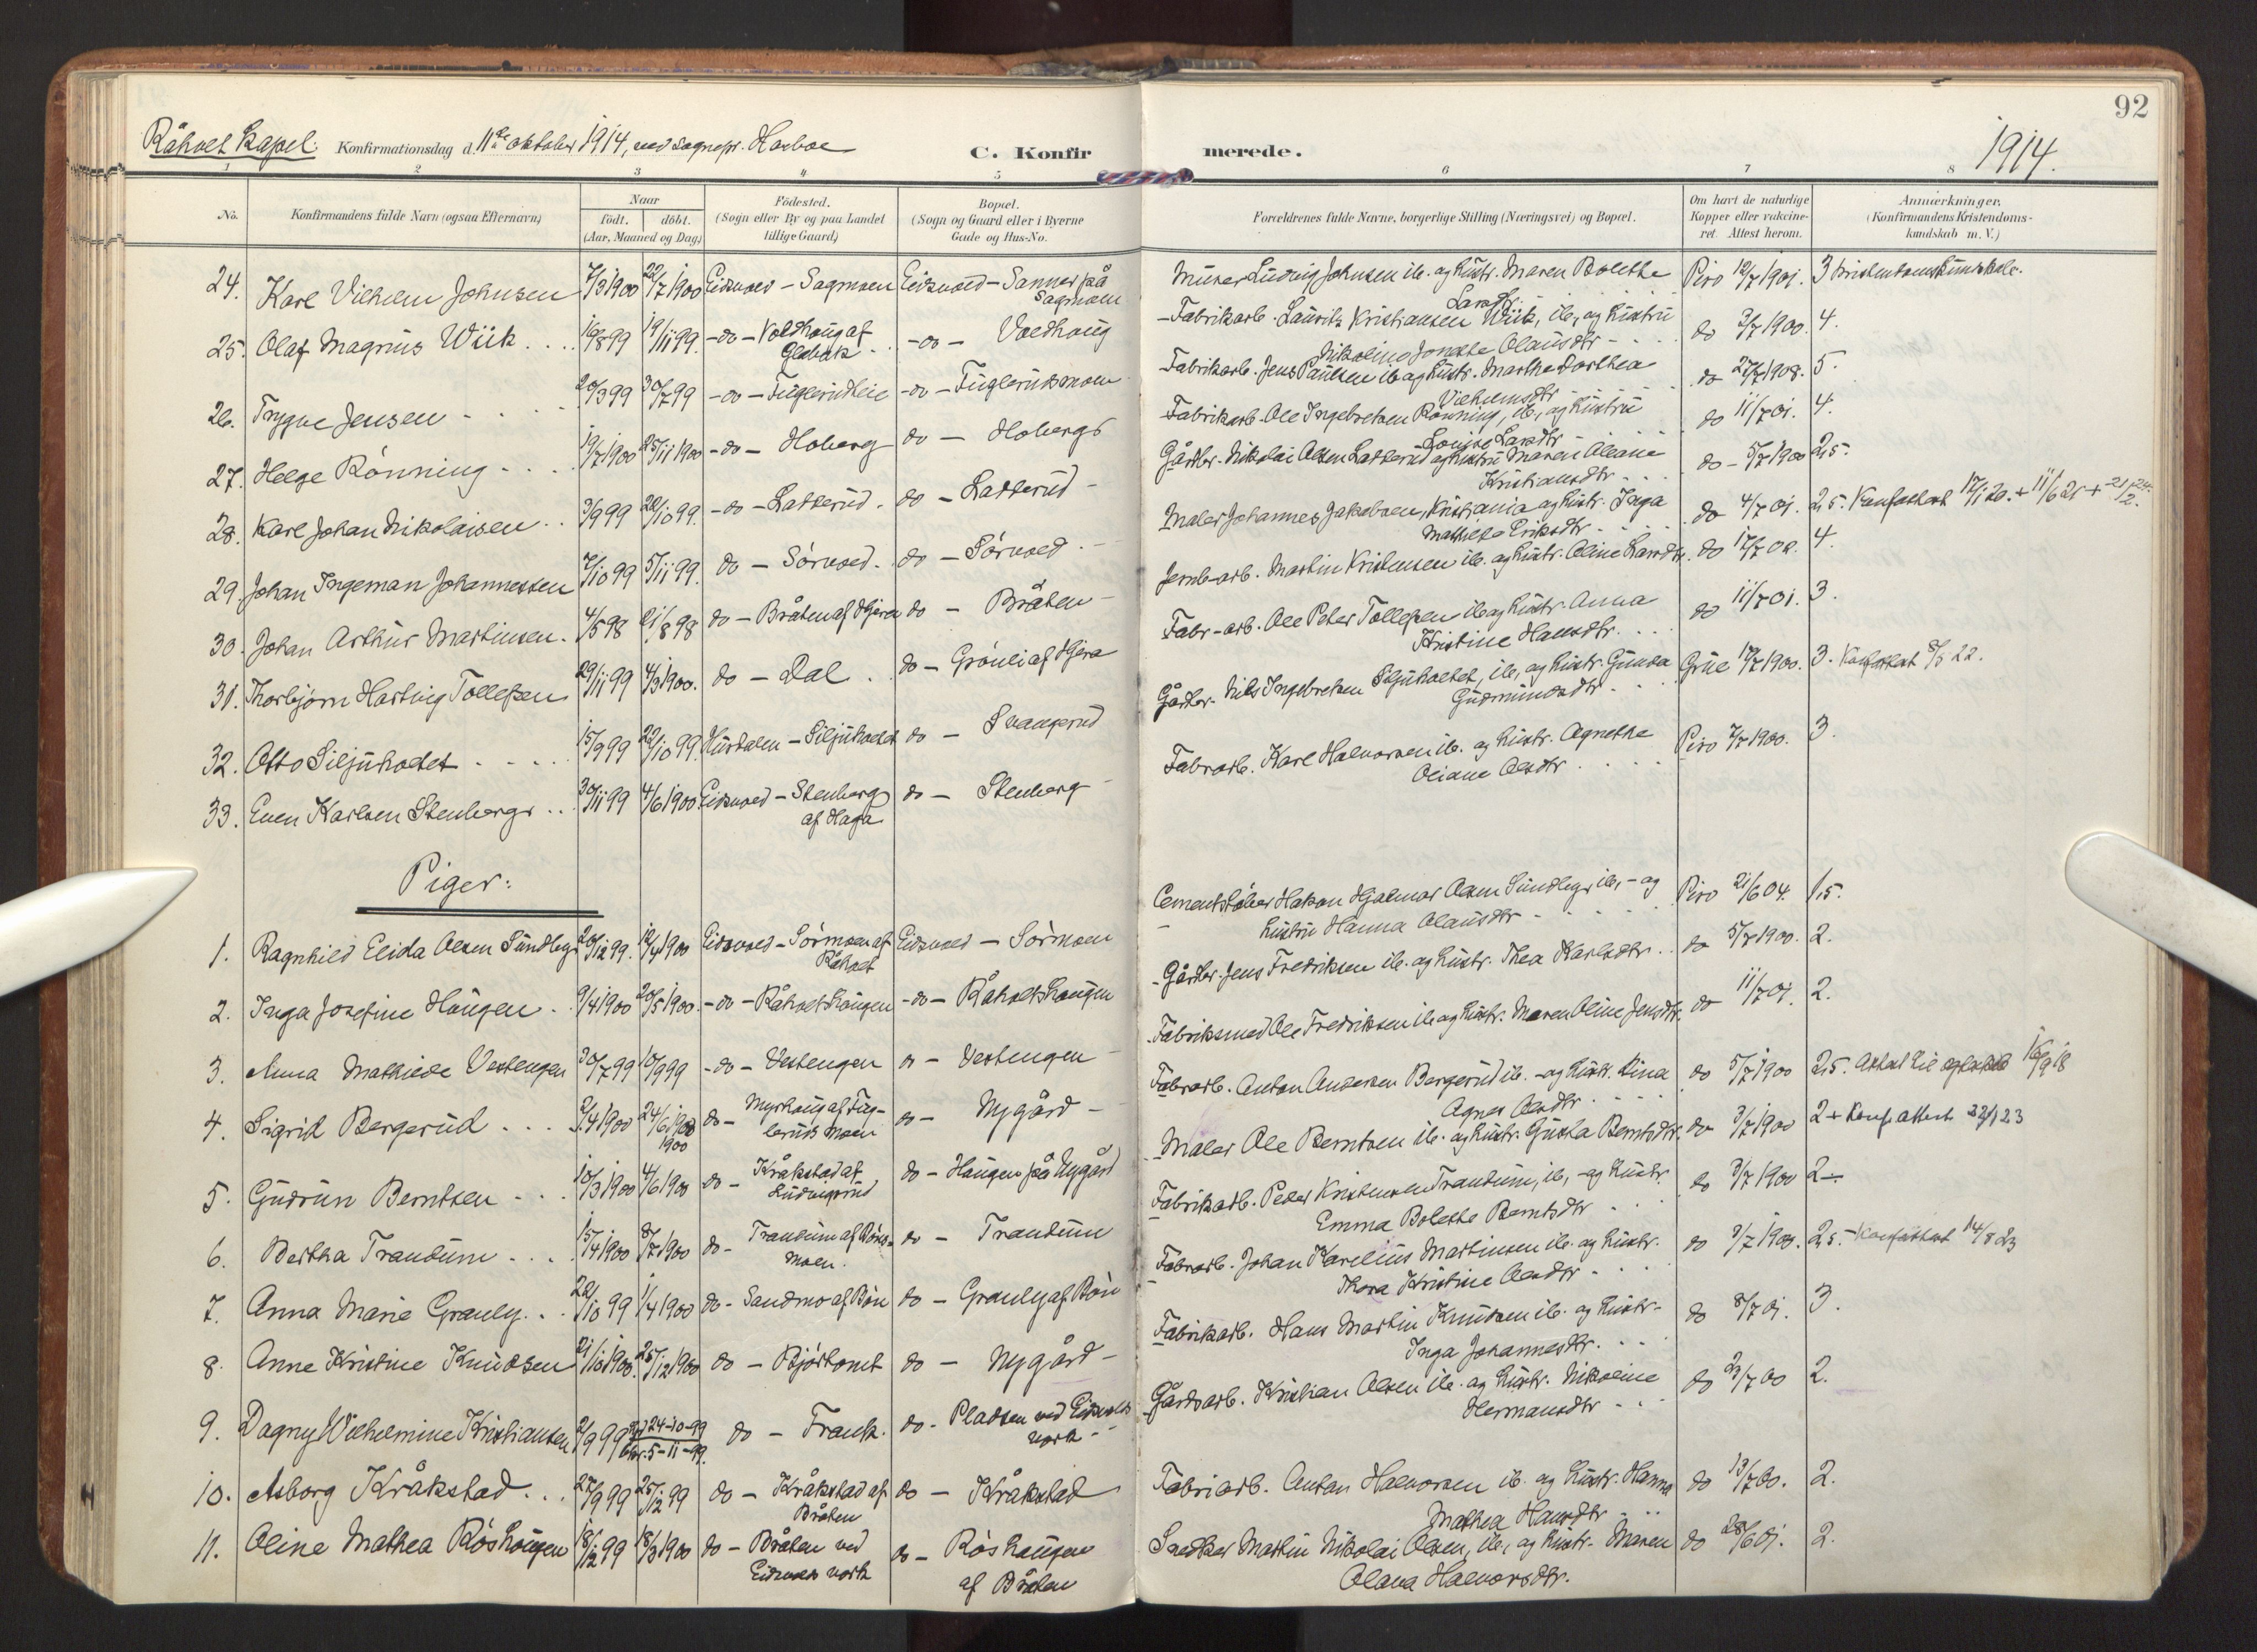 92
Råholt Kapel. Konfirmationsdag d. 11te oktober 1914, ved sognepr. Harboe
C. Konfirmerede.
1914.
1 2 3 4 5 6 7 8
No. Konfirmandens fulde Navn (ogsaa Efternavn) Naar födt. döbt. (Aar, Maaned og Dag) Födested. (Sogn eller By og paa Landet tillige Gaard) Bopæl. (Sogn og Gaard eller i Byerne Gade og Hus-No. Forældrenes fulde Navne, borgerlige Stilling (Næringsvei) og Bopæl. Om havt de naturlige Kopper eller vaccineret. Attest herom. Anmærkninger. (Konfirmandens Kristendomskundskab m. V.)
24. Karl Vilhelm Johnsen 7/3 1900 22/7 1900 Eidsvold - Sagmoen Eidsvold - Sannes på Sagmoen Murer Ludvig Johnsen ib. og hustr. Maren Bolethe Larsdtr. Piro 12/7 1901. 3 kristendomskundskab.
25. Olaf Magnus Wiik 16/8 99 19/11 99. -do- Voldhaug af Globak -do- Voldhaug Fabrikarb. Lauritz Kristiansen Wiik, ib., og hustru Nikoline Jonette Olausdtr do 3/7 1900. 4.
26. Trygve Jensen 20/3 99 30/7 99 -do- Fuglerudeie -do- Fuglerudmoen Fabrikarb. Jens Paulsen ib og hustr. Marthe Dorthea Vilhelmsdtr do 27/7 1908. 5.
27. Helge Rönning 19/7 1900 25/11 1900 -do- Hoberg do - Hoberg Fabrikarb. Ole Ingebretsen Rönning, ib., og hustru Louise Larsdtr do 11/7 01. 4.
28. Karl Johan Nikolaisen 3/9 99 22/10 99. -do- Latterud. do - Latterud Gårdbr. Nikolai Olsen Latterud og hustru Maren Oliane Kristiansdtr do - 5/7 1900 2,5.
29. Johan Ingeman Johannessen 7/10 99 5/11 99. do - Sörvold. do - Sörvold. Maler Johannes Jakobsen, Kristiania og hustr. Inga Mathilde Eriksdtr do 4/7 01. 2,5. Konfattest 17/1 20. + 11/6 21 + 21/2. 24.
30. Johan Arthur Martinsen. 4/5 98 21/8 98 do - Bråten af Gjera do - Bråten Jernb-arb. Martin Kristensen ib. og hustr. Oline Larsdtr. do 17/7 02. 4.
31. Thorbjörn Hartvig Tollefsen 29/11 99 4/3 1900. do - Dal. do - Grönli af Gjera Fabr-arb. Ole Peter Tollefsen ib og hustr. Anna Kristine Hansdtr. do 11/7 01. 3.
32. Otto Siljuholtet 15/9 99 22/10 99. Hurdalen - Siljuholtet do - Svangerud Gårdbr. Nils Ingebretsen Siljuholtet, ib., og hustr. Gunda Gudmundsdtr Grue 19/7 1900. 3. Konfattest 8/5 22.
33. Even Karlsen Stenberg 30/11 99 4/6 1900 Eidsvold - Stenberg af Haga do - Stenberg Fabrarb. Karl Halvorsen ib. og hustr. Agnethe Oliane Olsdtr Piro 2/7 1900. 3.
Piger:
1. Ragnhild Elida Olsen Sundby 20/12 99. 12/4 1900 Eidsvold - Sörmoen af Råholt Eidsvold - Sörmoen Cementstöber Hakon Hjalmar Olsen Sundby, ib., - og hustru Hanna Olausdtr Piro 21/6 04. 1,5.
2. Inga Josefine Haugen 9/4 1900 20/5 1900. -do- Råholthaugen -do- Råholthaugen Gårdbr. Jens Fredriksen ib. og hustr. Thea Karlsdtr. do 5/7 1900. 2.
3. Anna Mathilde Vestengen 30/7 99 10/9 99 -do- Vestengen do - Vestengen Fabriksmed Ole Fredriksen ib og hustr. Maren Oline Jensdtr. do 11/7 01. 2.
4. Sigrid Bergerud 2/4 1900 24/6 1900 1900 do - Myrhaug af Fuglerudmoen do - Nygård Fabrarb. Anton Andersen Bergerud ib. - og hustr. Lina Agnes Olsdtr do 5/7 1900 2,5. Attest til 16/9 18
5. Gudrun Berntsen 10/3 1900 4/6 1900 do - Kråkstad af Ludvigsrud do - Haugen på Nygård Maler Ole Berntsen ib. og hustr. Gusta Berntsdtr. do 3/7 1900 2 + Konf. attest 22/1 23
6. Bertha Trandum 15/4 1900 8/7 1900 do - Trandum af Bönsmoen. do - Trandum Fabrikarb. Peder Kristensen Trandum, ib., - og hustr. Emma Bolethe Berntsdtr do 3/7 1900 2 -.
7. Anna Marie Granly. 22/10 99 1/4 1900 do - Sandmo af Bön do - Granly af Bön Fabrarb. Johan Karelius Martinsen ib. og hustr. Thora Kristine Olsdtr do 3/7 1900. 2,5. - Konfattest 14/8 23
8. Anne Kristine Knudsen 21/10 1900. 25/12 1900 do - Björtomt do - Nygård Fabrikarb. Hans Martin Knudsen ib. og hustr. Inga Johannesdtr. do 8/7 01. 3.
9. Dagny Vilhelmine Kristiansen 2/9 99 24-10-99 5-11-99. do - Frank. do - Pladsen ved Eidsvolds verk Gårdsarb. Kristian Olsen ib. og hustr. Nikoline Hermansdtr do 2/7 00 2.
10. Asborg Kråkstad 27/9 99 25/12 99 do - Kråkstad af Bråten do - Kråkstad Fabriarb. Anton Halvorsen ib. og hustr. Hanna Mathea Hansdtr do 13/7 00. 2.
11. Oline Mathea Röshaugen 18/12 99 18/3 1900 do - Bråten ved Eidsvolds verk do - Röshaugen af Bråten Snedker Martin Nikolai Olsen, ib., og hustr. Maren Olava Halvorsdtr. do 28/6 01. 2.